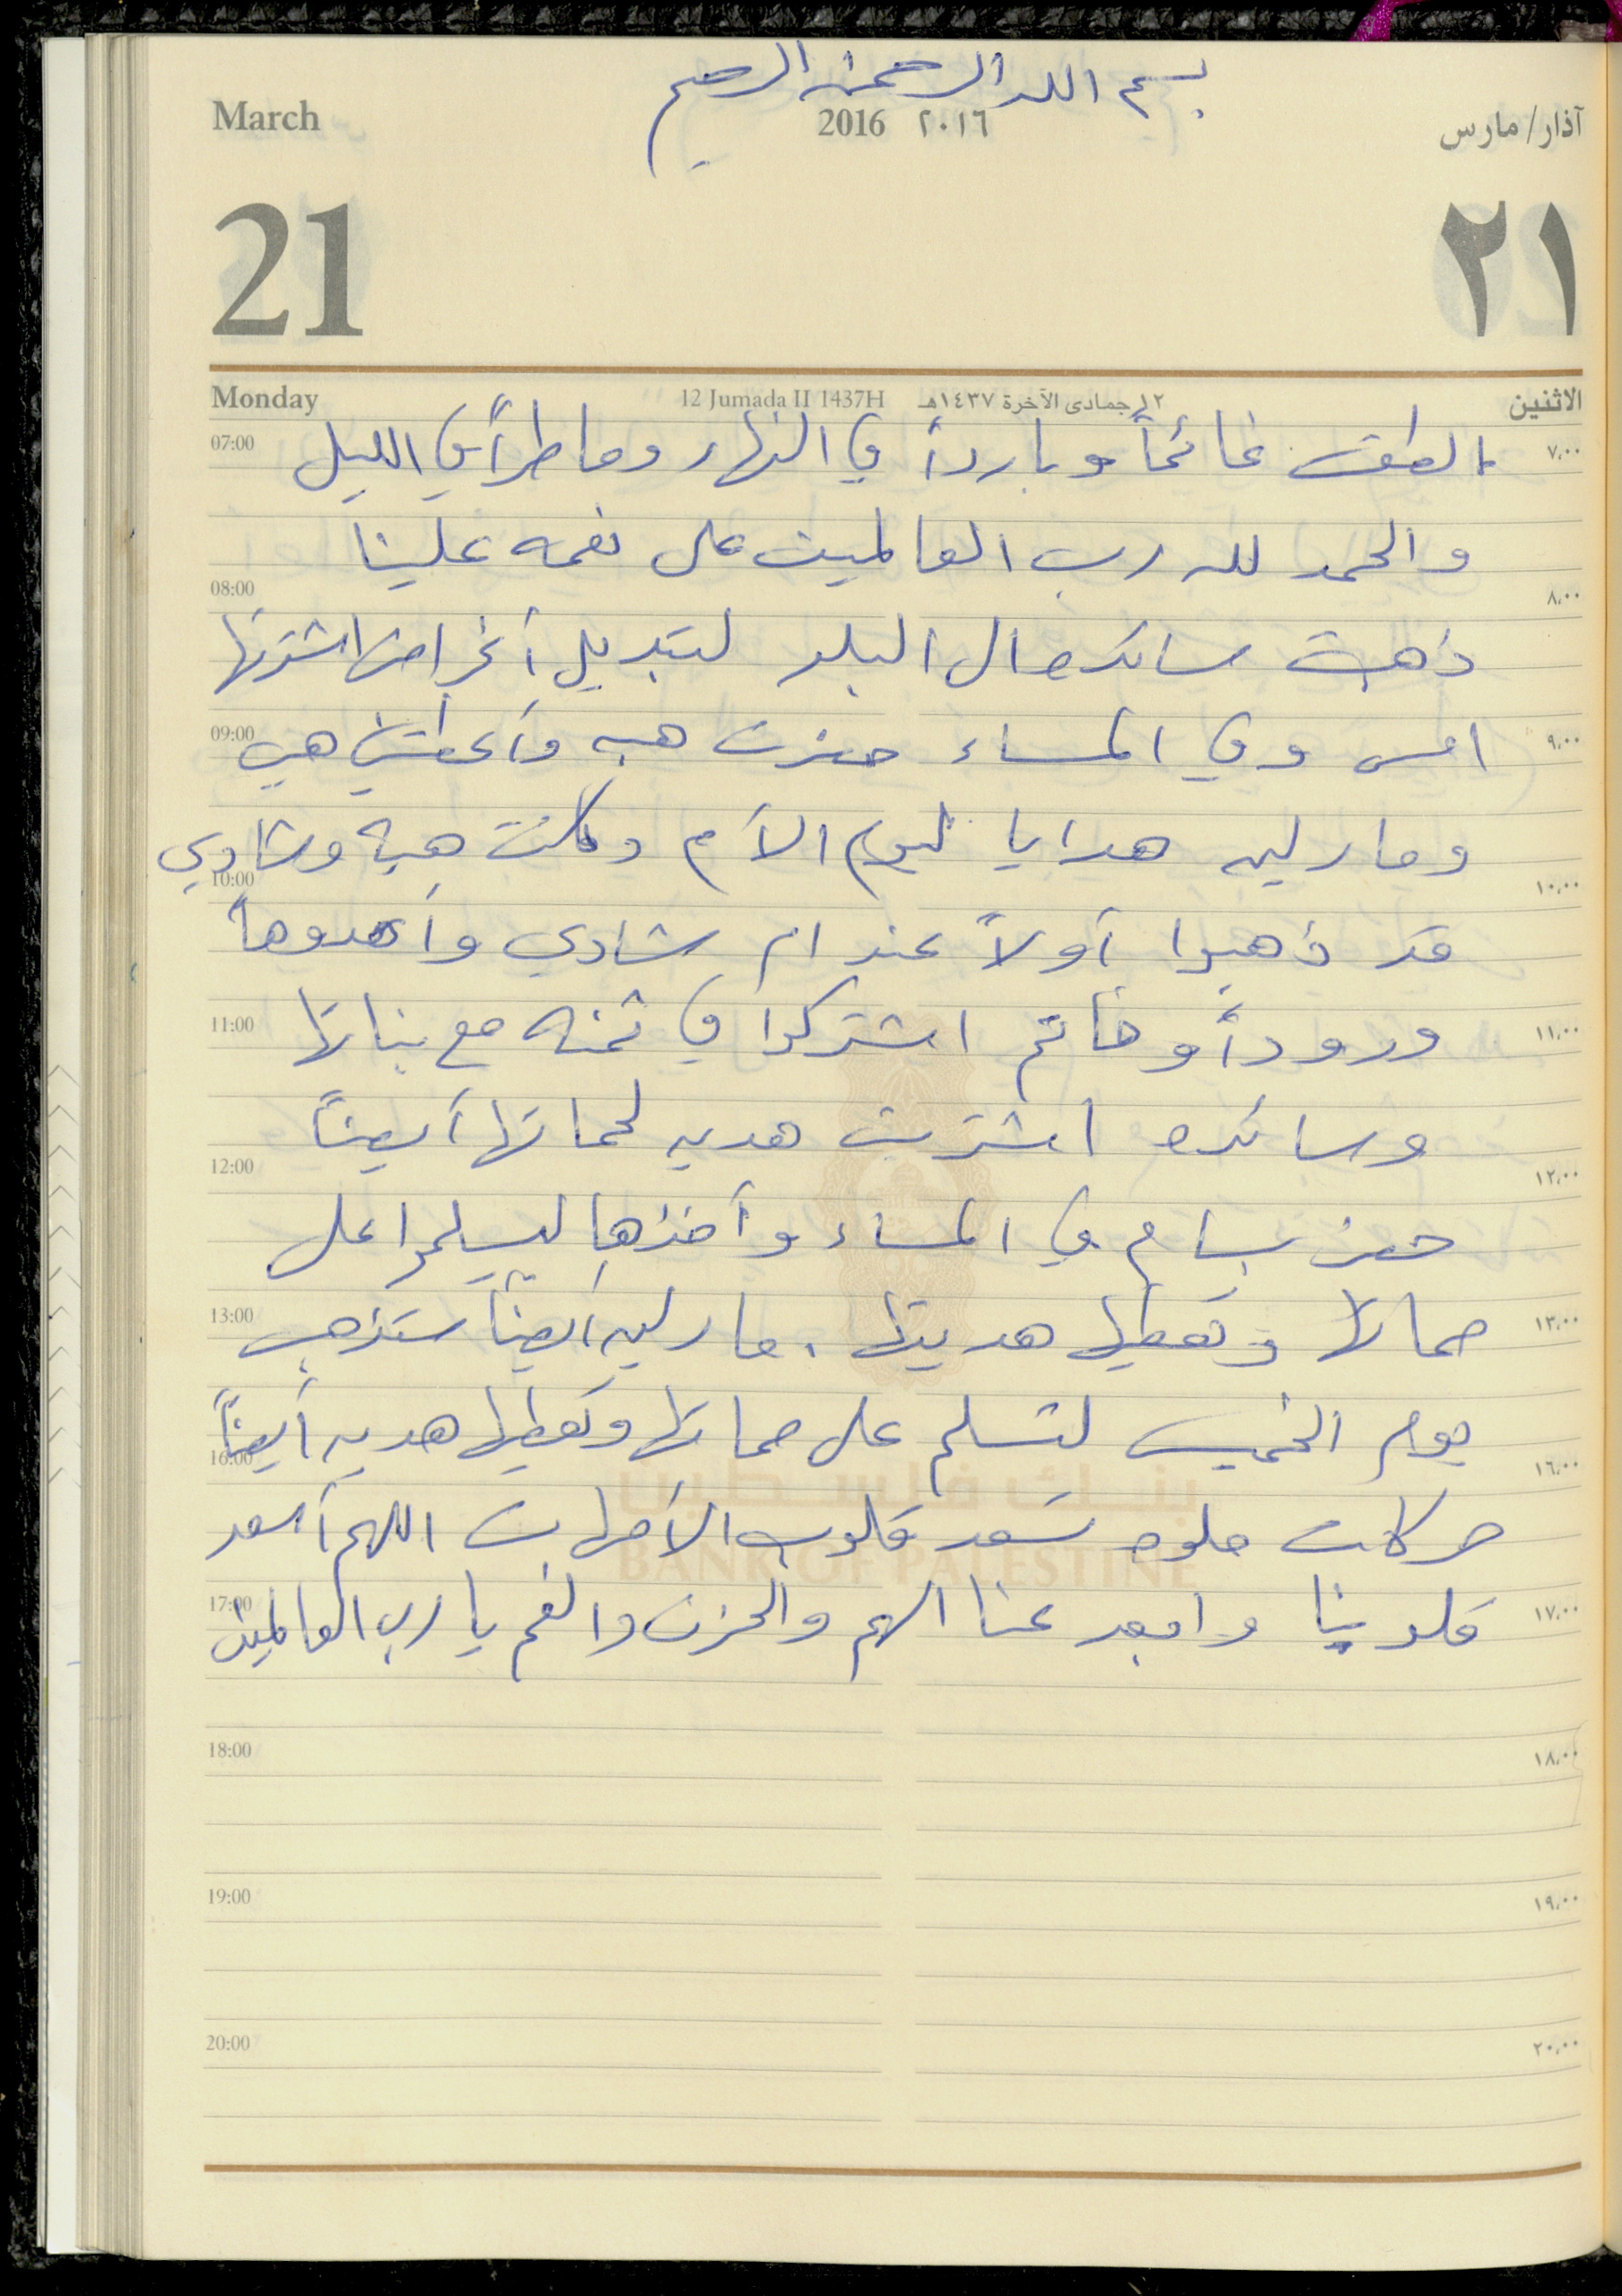 بسم الله الرحمن الرحيم
March 2016 ٢٠١٦ آذار/مارس
21 ٢١
Monday 12 Jumada II 1437H ١٢ جمادى الآخرة ١٤٣٧هـ الاثنين
07:00 الطقس غائماً وبارداً في النهار وماطراً في الليل ٧،٠٠
والحمد لله رب العالمين على نعمه علينا
08:00 ٨،٠٠
ذهبت سائده الى البلد لتبديل أغراض اشترتها
09:00 امس وفي المساء حضرت هبه وأعطتني هي ٩،٠٠
ومارليه هدايا ليوم الأم وكانت هبه وشادي
10:00 ١٠،٠٠
قد ذهبوا أولاً عند ام شادي وأهدوها
11:00 وروداً وخاتم اشتركوا في ثمنه مع بناتها ١١،٠٠
وسائده اشترت هديه لحماتها أيضاً
12:00 ١٢،٠٠
حضر بسام في المساء وأخذها ليسلموا على
13:00 حماتها وتعطيها هديتها . مارليه أيضاً ستذهب ١٣،٠٠
يوم الخميس لتسلم على حماتها وتعطيها هديه أيضاً
16:00 ١٦،٠٠
بنك فلسطين
حركات حلوه تسعد قلوب الأمهات اللهم أسعد
BANK OF PALESTINE
17:00 قلوبنا وابعد عنا الهم والحزن والغم يا رب العالمين ١٧،٠٠
18:00 ١٨،٠٠
19:00 ١٩،٠٠
20:00 ٢٠،٠٠